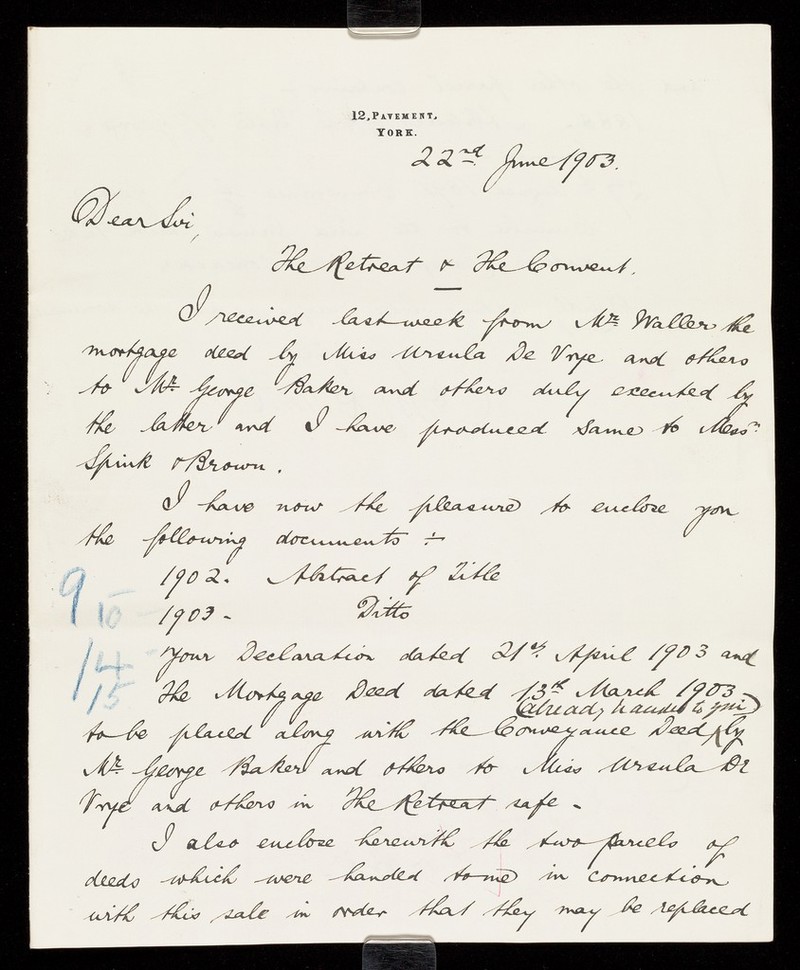 12, PAVEMENT,
YORK.
22nd June 1903.
Dear Sir,
The Retreat & The Convent.
I received last week from Mr. Waller the
mortgage deed by Miss Ursula De Vrye and others
to Mr. George Baker and others duly executed by
the latter and I have produced same to Messrs
Spink & Brown.
I have now the pleasure to enclose you
the following documents :-
1902. Abstract of Title
9 10 1903. Ditto
14 Your Declaration dated 21st. April 1903 and
15 The Mortgage Deed dated 13th March 1903
(already handed to you)
to be placed along with the Conveyance Deed by
Mr. George Baker and others to Miss Ursula De
Vrye and others in The Retreat safe.
I also enclose herewith the two parcels of
deeds which were handed to me in connection
with this sale in order that they may be replaced